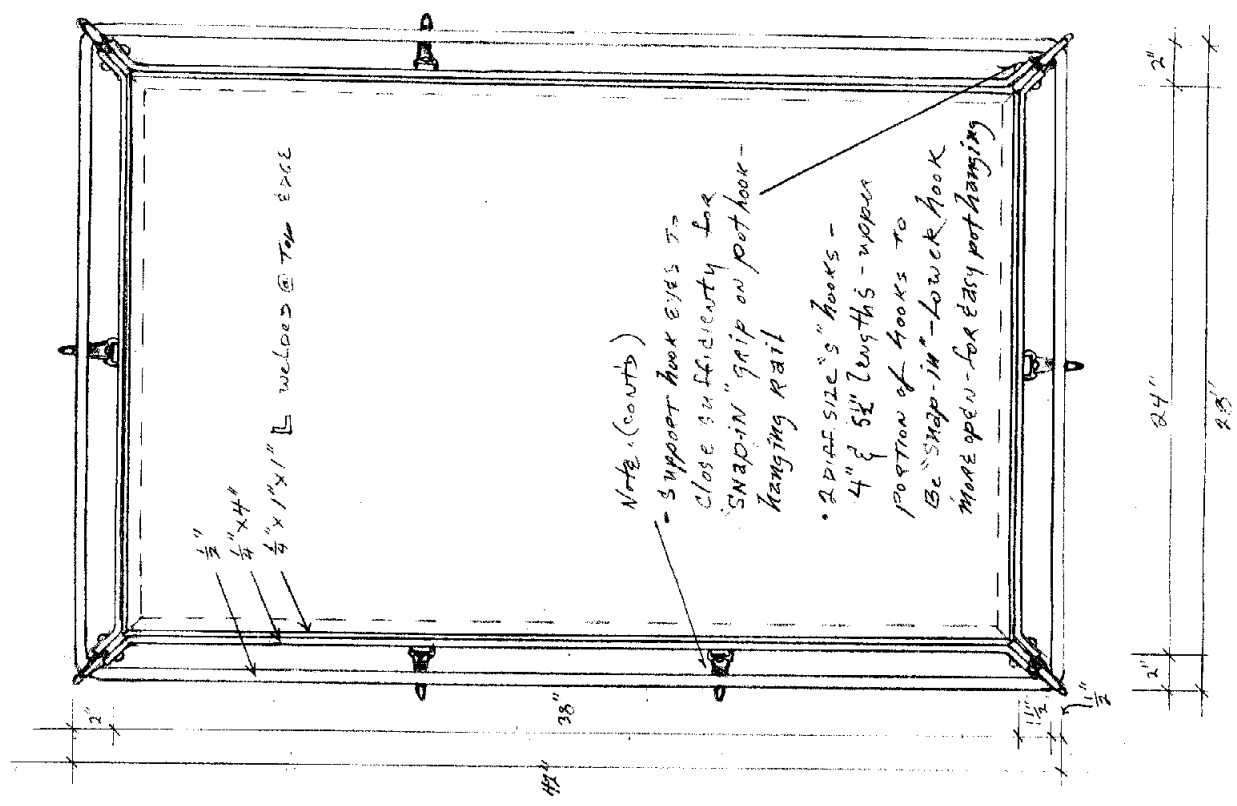 ½"
¼" x 4"
¼" x 1" x 1" L welded @ Top EDGE
Note: (CONT'D)
- Support hook eyes to
close sufficiently for
"SNAP-IN" grip on pot hook-
hanging Rail
• 2 DIFF. SIZE "S" hooks -
4" & 5½" lengths - upper
PORTION of hooks TO
Be "Snap-in" - Lower hook
MORE open - for Easy pot hanging
2"
38"
1½"
½"
42"
2"
24"
2"
28"